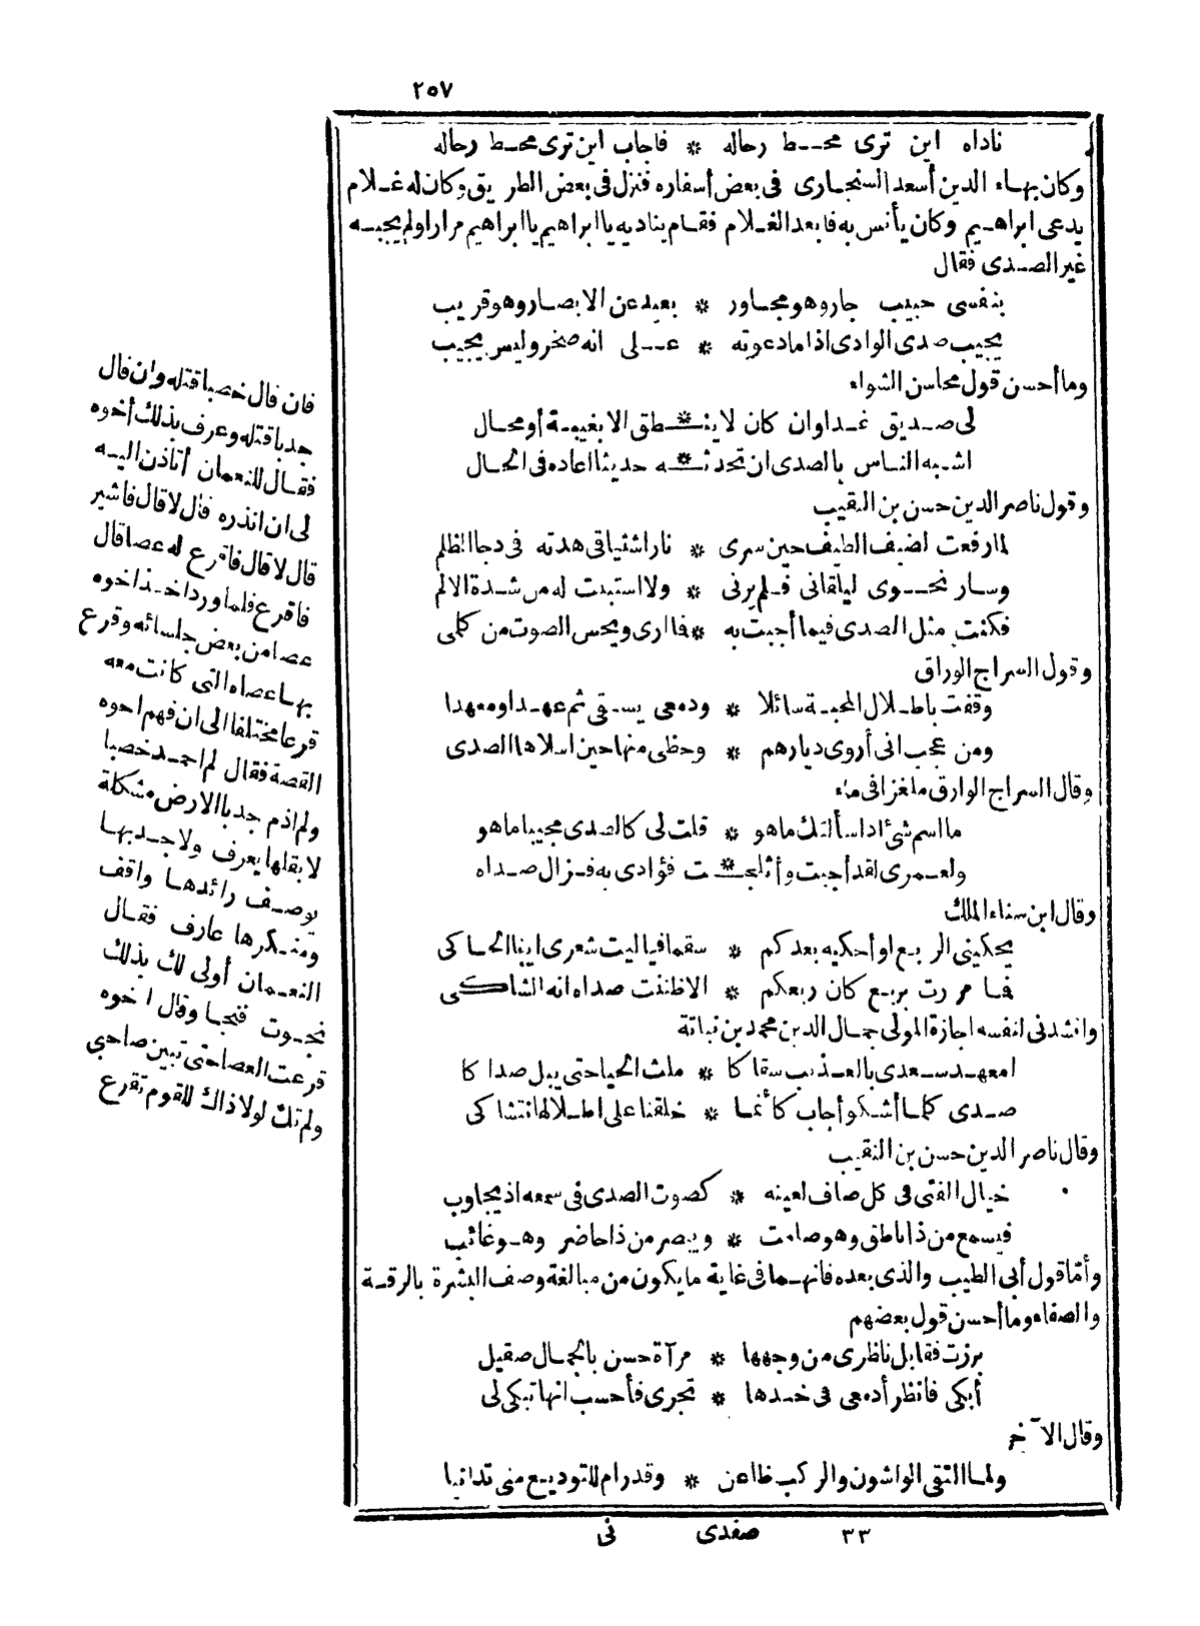 ٢٥٧
ناداه اين ترى محط رحاله * فاجاب اين ترى محط رحاله
وكان بهاء الدين أسعد السنجارى فى بعض أسفاره فنزل فى بعض الطريق وكان له غلام
يدعى ابراهيم وكان يأنس به فابعد الغلام فقام يناديه يا ابراهيم يا ابراهيم مرارا ولم يجبه
غير الصدى فقال
بنفسى حبيب جار وهو مجاور * بعيد عن الابصار وهو قريب
يجيب صدى الوادى اذا ما دعوته * على انه صخر وليس يجيب
وما أحسن قول محاسن الشواء
لى صديق غدا وان كان لا ينطق * الا بغيبة أو محال
اشبه الناس بالصدى ان تحدثه * حديثا اعاده فى الحال
وقول ناصر الدين حسن بن النقيب
لما رفعت لضيف الطيف حين سرى * نار اشتياقى هدته فى دجا الظلم
وسار نحوى ليلقانى فلم يرنى * ولا استبنت له من شدة الالم
فكنت مثل الصدى فيما أجبت به * فما ارى ويحس الصوت من كلمى
وقول السراج الوراق
وقفت باطلال المحبة سائلا * ودمعى يسقى ثم عهدا ومعهدا
ومن عجب انى أروى ديارهم * وحظى منها حين اسلاها الصدى
وقال السراج الوارق ملغزا فى ماء
ما اسم شئ اذا سألتك ماهو * قلت لى كالصدى مجيبا ماهو
ولعمرى لقد أجبت وأثلجت * فؤادى به فزال صداه
وقال ابن سناء الملك
يحكينى الربع او أحكيه بعدكم * سقما فيا ليت شعرى اينا الحاكى
فما مررت بربع كان ربعكم * الا ظننت صداه انه الشاكى
وانشدنى لنفسه اجازة المولى جمال الدين محمد بن نباتة
امعهد سعدى بالعذيب سقاكا * ملث الحيا حتى يبل صداكا
صدى كلما أشكو أجاب كأنما * خلقنا على اطلالها نتشاكى
وقال ناصر الدين حسن بن النقيب
خيال الفتى فى كل صاف لعينه * كصوت الصدى فى سمعه اذ يجاوب
فيسمع من ذا ناطق وهو صامت * ويبصر من ذا حاضر وهو غائب
وأما قول أبى الطيب والذى بعده فانهما فى غاية ما يكون من مبالغة وصف البشرة بالرقة
والصفاء وما أحسن قول بعضهم
برزت فقابل ناظرى من وجهها * مرآة حسن بالجمال صقيل
أبكى فانظر أدمعى فى خدها * تجرى فأحسب انها تبكى لى
وقال الآخر
ولما التقى الواشون والركب ظاعن * وقد رام للتوديع منى تدانيا
٣٣ صفدى نى
فان قال خصبا قتله وان قال
جدبا قتله وعرف بذلك أخوه
فقال للنعمان أتاذن اليه
لى ان انذره قال لا قال فاشير
قال لا قال فاقرع له عصا قال
فاقرع فلما ورد اخذ اخوه
عصا من بعض جلسائه وقرع
بها عصاه التى كانت معه
قرعا مختلفا الى ان فهم اخوه
القصة فقال لم احمد خصبا
ولم اذم جدبا الارض مشكلة
لا بقلها يعرف ولا جدبها
يوصف رائدها واقف
ومنكرها عارف فقال
النعمان أولى لك بذلك
نجوت فنجا وقال اخوه
قرعت العصا حتى تبين صاحبى
ولم تك لولا ذاك للقوم تقرع